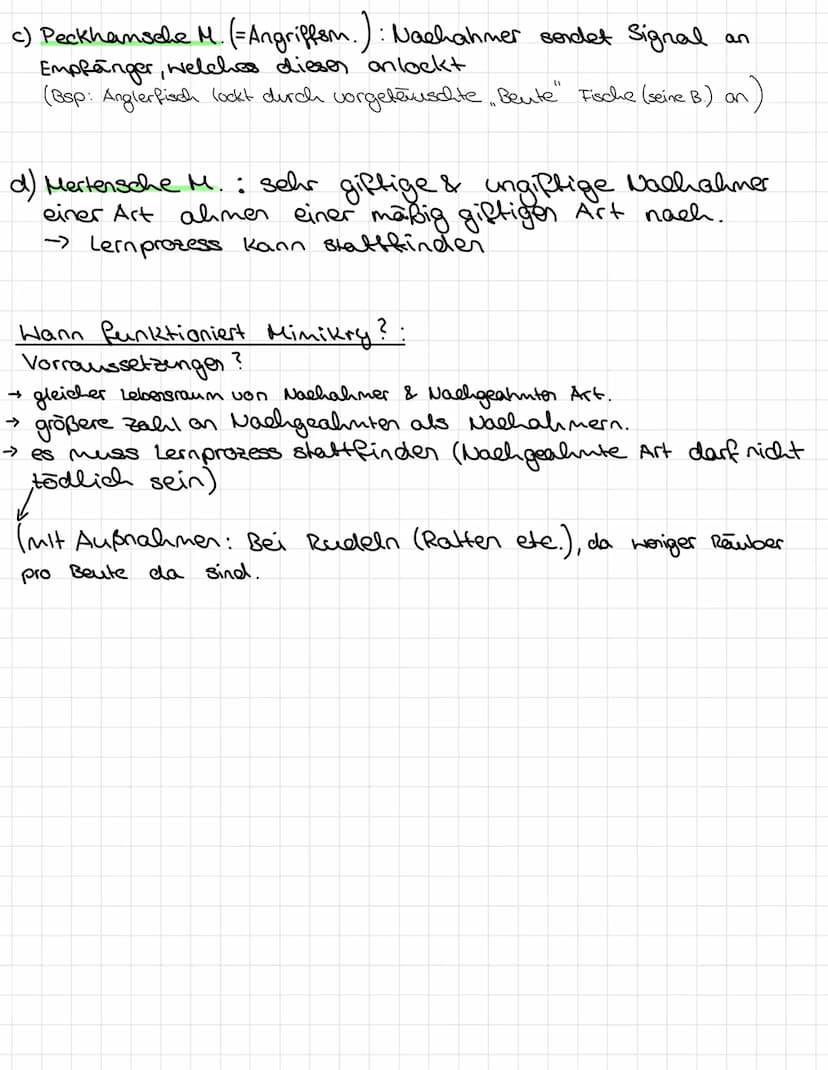 c) Peckhamsche M. (=Angriffsm.) : Nachahmer sendet Signal an
Empfänger, welches diesen anlockt
(Bsp: Anglerfisch lockt durch vorgetäuschte „Beute" Fische (seine B.) an)
d) Mertensche M. : sehr giftige & ungiftige Nachahmer
einer Art ahmen einer mäßig giftigen Art nach.
-> Lernprozess kann stattfinden
Wann funktioniert Mimikry? :
Vorraussetzungen?
→ gleicher Lebensraum von Nachahmer & Nachgeahmten Art.
→ größere Zahl an Nachgeahmten als Nachahmern.
→ es muss Lernprozess stattfinden (Nachgeahmte Art darf nicht
tödlich sein)
(mit Außnahmen: Bei Rudeln (Ratten etc.), da weniger Räuber
pro Beute da sind.